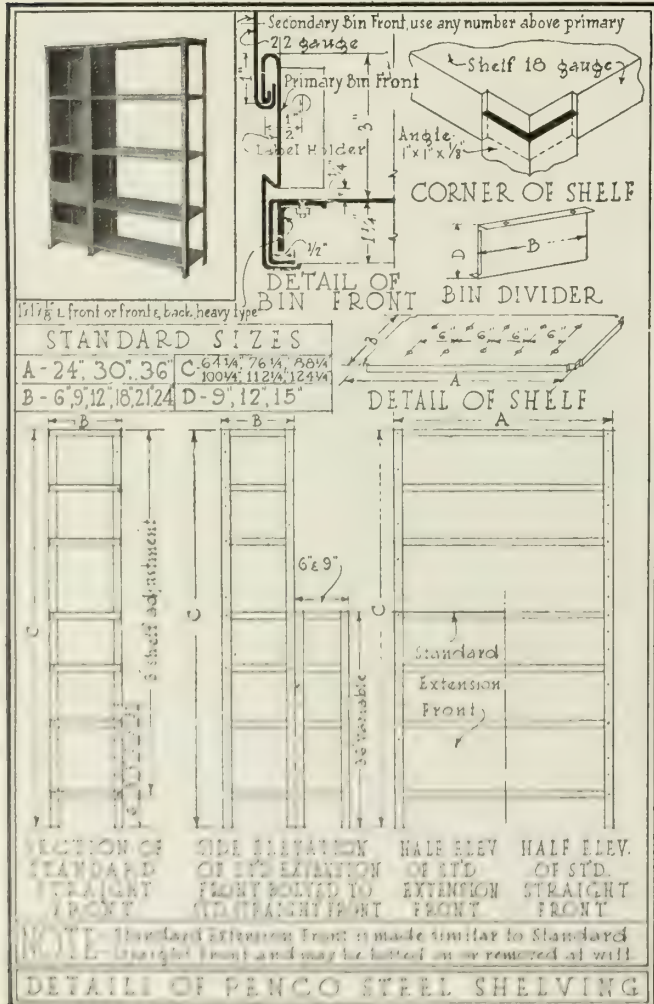 Secondary Bin Front, use any number above primary
22 gauge
1"
Primary Bin Front
1"
1/2"
Label Holder
3"
1/4"
1 1/4"
1/2"
DETAIL OF
BIN FRONT
Shelf 18 gauge
Angle
1" x 1" x 1/8"
CORNER OF SHELF
D
B
BIN DIVIDER
L front or front & back, heavy type
STANDARD SIZES
A - 24", 30", 36" C 64 1/4", 76 1/4, 88 1/4
100 1/4", 112 1/4", 124 1/4
B - 6", 9", 12", 18", 21", 24 D - 9", 12", 15"
B
6" 6" 6" 6"
A
DETAIL OF SHELF
B
B
A
C
shelf adjustment
C
6" & 9"
Variable
C
Standard
Extension
Front
SECTION OF
STANDARD
STRAIGHT
FRONT
SIDE ELEVATION
OF STD EXTENSION
FRONT BOLTED TO
STD STRAIGHT FRONT
HALF ELEV
OF STD
EXTENSION
FRONT
HALF ELEV.
OF STD.
STRAIGHT
FRONT
NOTE - Standard Extension Front is made similar to Standard
Straight Front and may be bolted on or removed at will
DETAILS OF PENCO STEEL SHELVING